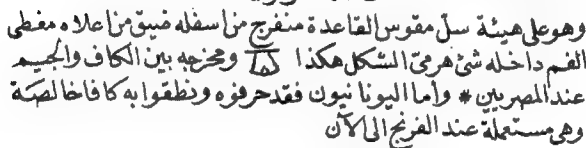 وهو على هيئة سلّ مقوس القاعدة منفرج من اسفله ضيق من اعلاه مغطى
الفم داخله شئ هرمىّ الشكل هكذا ومخرجه بين الكاف والجيم
عند المصريين * واما اليونانيون فقد حرفوه ونطقوا به كافا خالصة
وهى مستعملة عند الفرنج الى الآن